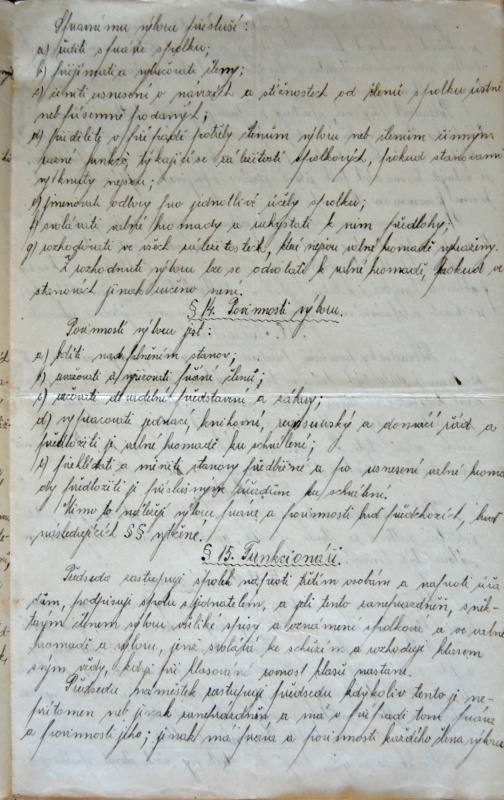 Správnímu výboru přísluší:
a) říditi správu spolku;
b) přijímati a vylučovati členy;
c) činiti usnesení o návrzích a stížnostech od členů spolku ústně
neb písemně podaných;
d) přiděliti v případě potřeby členům výboru neb členům činným
funkci týkající se záležitostí spolkových, pokud stanovami
vytknuty nejsou;
e) jmenovati odbory pro jednotlivé účely spolku;
f) svolávati valné hromady a uchystati k nim předlohy;
g) rozhodovati ve všech záležitostech, které nejsou valné hromadě vyhrazeny.
Z rozhodnutí výboru lze se odvolati k valné hromadě, pokud ve
stanovách jinak určeno není.
§ 14. Povinnosti výboru.
Povinností výboru jest:
a) bdíti nad plněním stanov;
b) uvažovati a vyřizovati přání členů;
c) určovati divadelní představení a zábavy;
d) vypracovati jednací, knihovní, a domácí řád a
předložiti je valné hromadě ku schválení;
e) přehlédati a měniti stanovy předběžně a po usnesení valné hroma-
dy předložiti je příslušným úřadům ku schválení.
Mimo to náležejí výboru práva a povinnosti buď předchozích, buď
následujících §§ vytknuté.
§ 15. Funkcionáři.
Předseda zastupuje spolek naproti třetím osobám a naproti úřa-
dům, podpisuje spolu s jednatelem, a je-li tento zaneprázdněn, s něk-
terým členem výboru veškeré spisy a oznámení spolková a ve valné
hromadě a výboru, jenž svolává ke schůzím a rozhoduje hlasem
svým vždy, když při hlasování rovnost hlasů nastane.
Předsedův náměstek zastupuje předsedu kdykoliv tento je ne-
přítomen neb jinak zaneprázdněn a má v případě tom práva
a povinnosti jeho; jinak má práva a povinnosti každého člena výboru